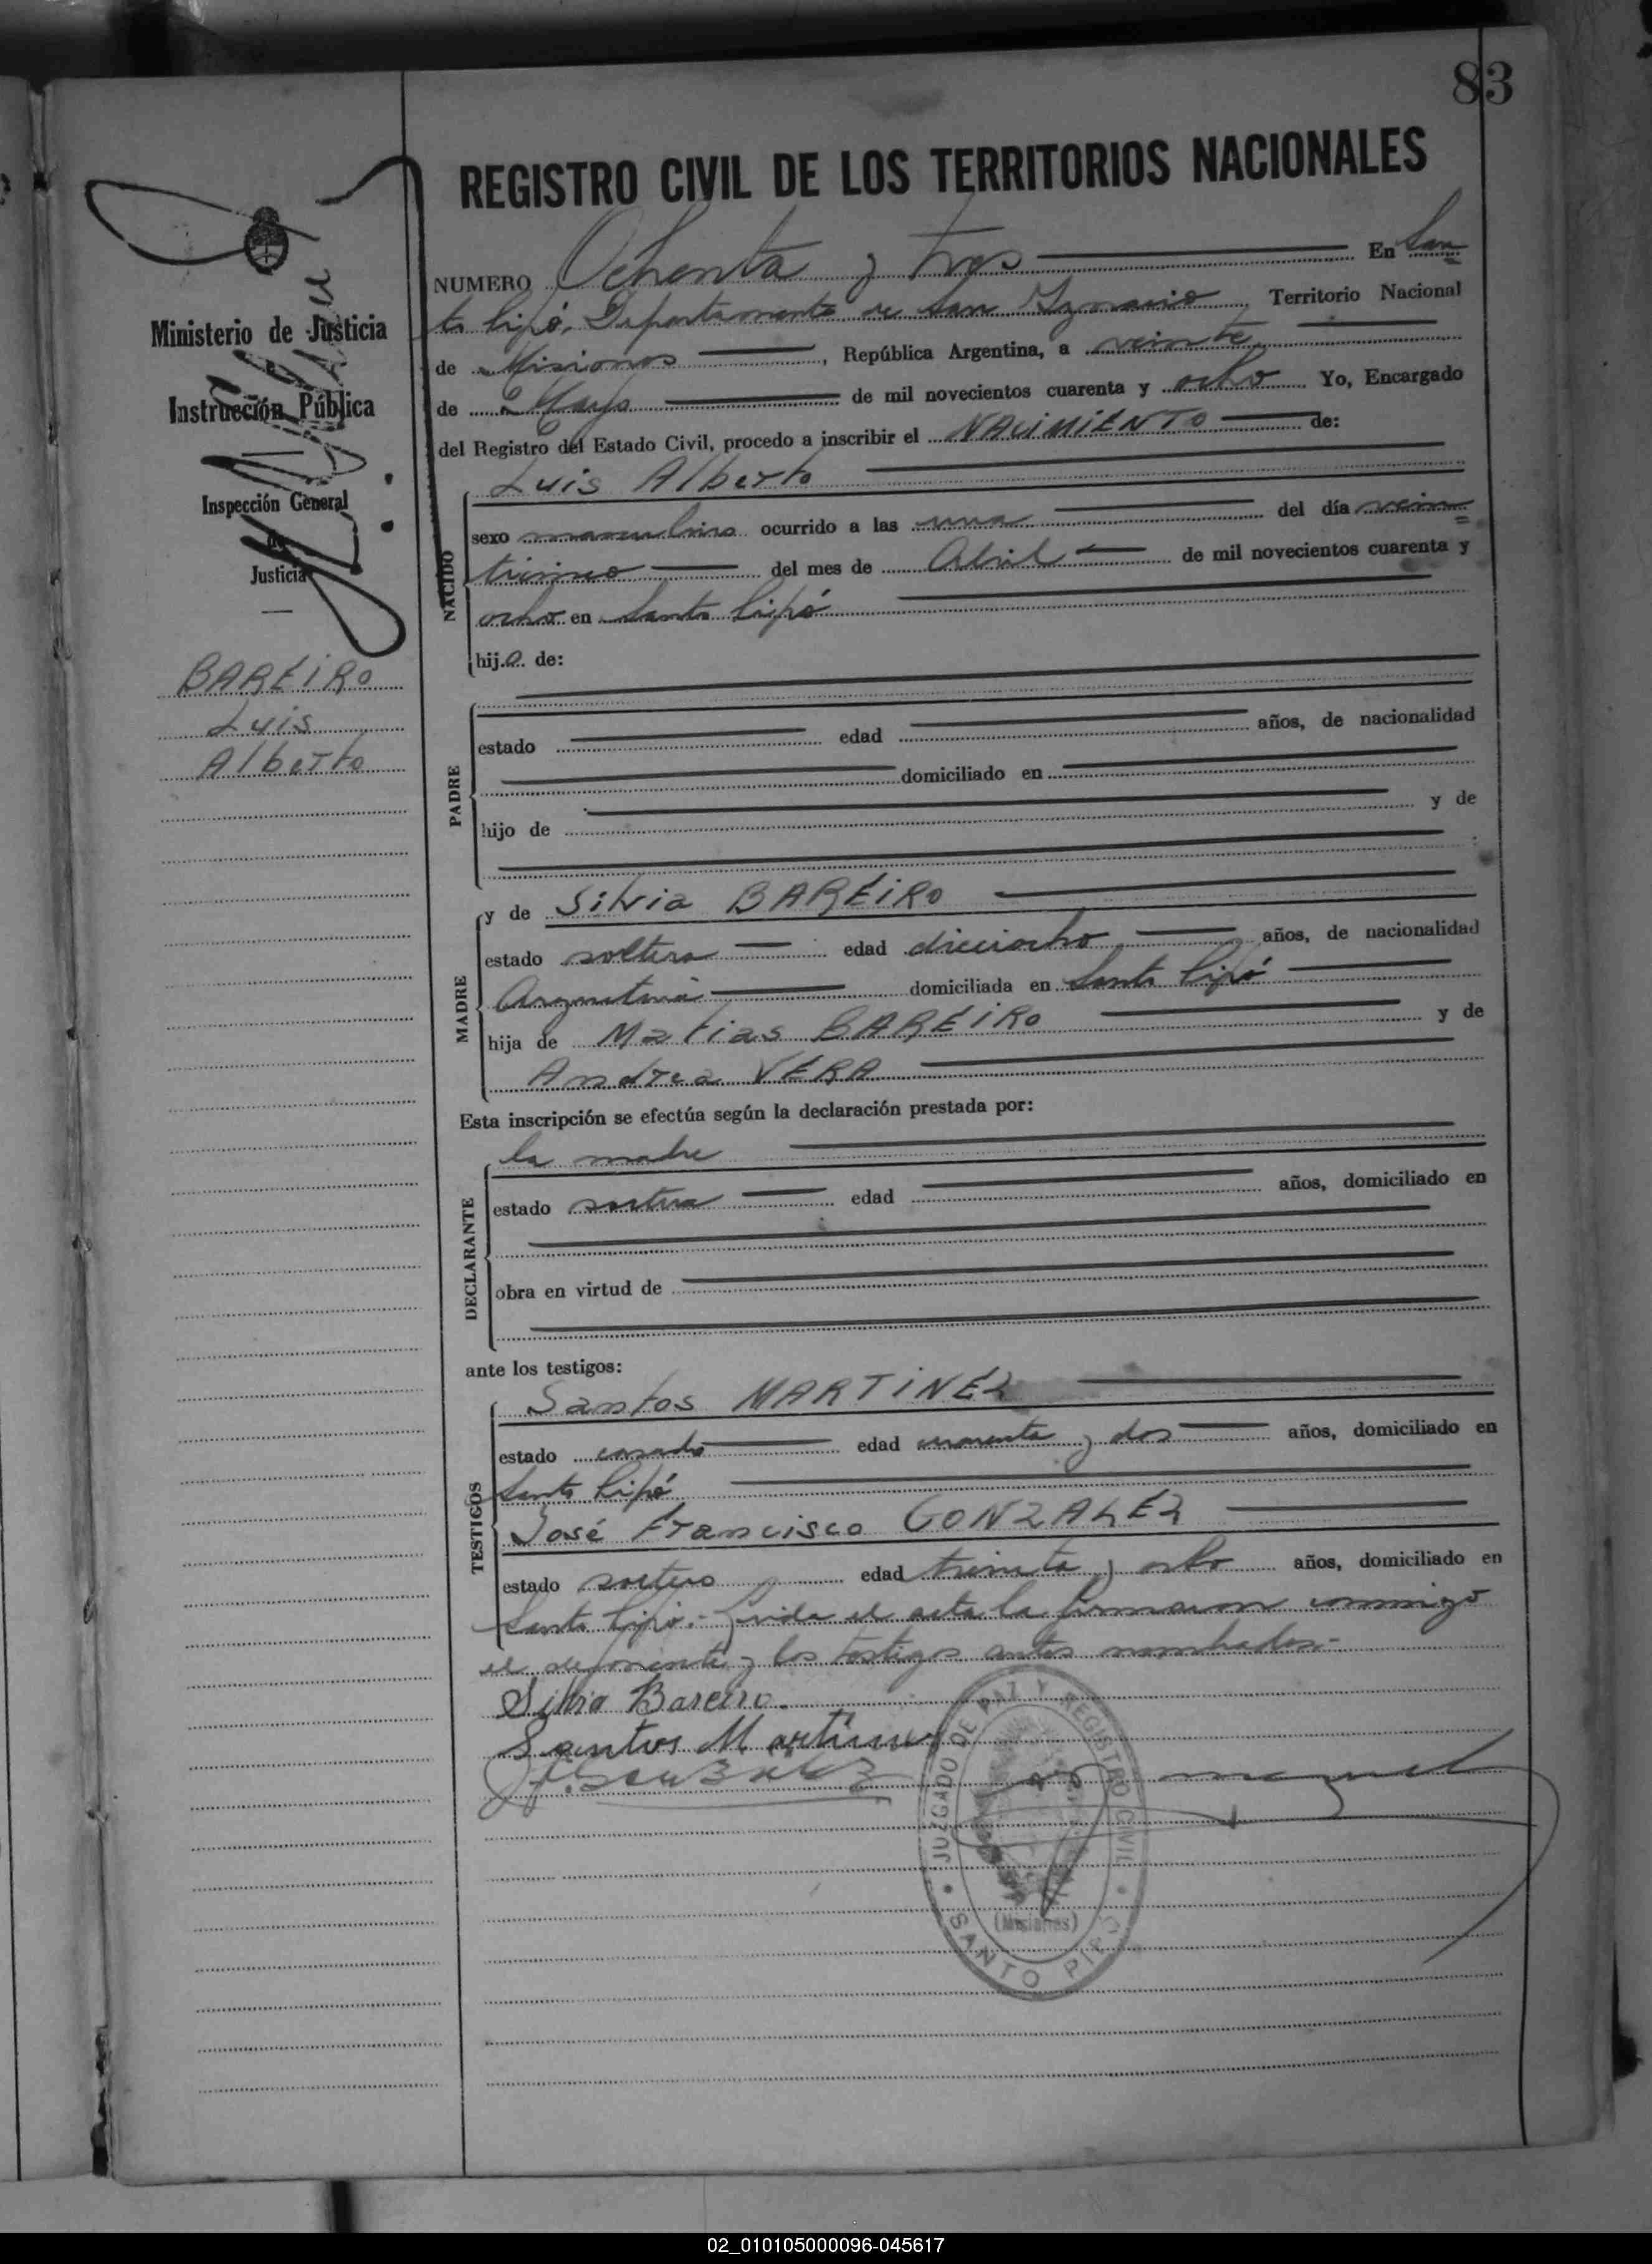 83
REGISTRO CIVIL DE LOS TERRITORIOS NACIONALES
NUMERO Ochenta y tres En San
to Pipó, Departamento de San Ignacio Territorio Nacional
de Misiones, República Argentina, a veinte
de Mayo de mil novecientos cuarenta y ocho Yo, Encargado
del Registro del Estado Civil, procedo a inscribir el NACIMIENTO de:
Luis Alberto
NACIDO
sexo masculino ocurrido a las una del día vein
ticinco del mes de Abril de mil novecientos cuarenta y
ocho en Santo Pipó
hijo de:
PADRE
estado edad años, de nacionalidad
domiciliado en
hijo de y de
MADRE
y de Silvia BAREIRO
estado soltera edad dieciocho años, de nacionalidad
Argentina domiciliada en Santo Pipó
hija de Matias BAREIRO y de
Andrea VERA
Esta inscripción se efectúa según la declaración prestada por:
DECLARANTE
la madre
estado soltera edad años, domiciliado en
obra en virtud de
ante los testigos:
TESTIGOS
Santos MARTINEZ
estado casado edad cuarenta y dos años, domiciliado en
Santo Pipó
José Francisco GONZALEZ
estado soltero edad treinta y ocho años, domiciliado en
Santo Pipó.- Leida el acta la firmaron conmigo
el deponente y los testigos antes nombrados.-
Silvia Bareiro.
Santos Martinez
JUZGADO DE PAZ Y REGISTRO CIVIL
(Misiones)
SANTO PIPO
Ministerio de Justicia
e
Instrucción Pública
Inspección General
de
Justicia
BAREIRO
Luis
Alberto
02_010105000096-045617